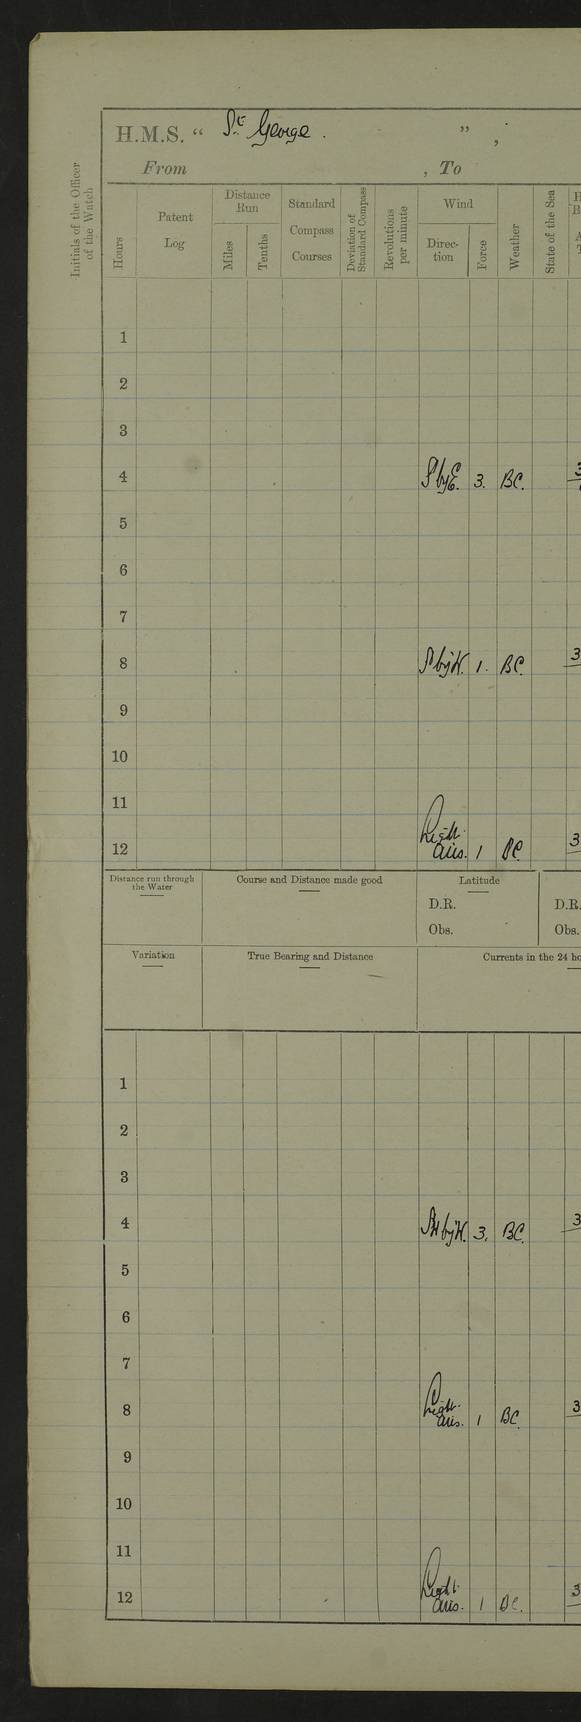 H.M.S. “ St George . ” ,
From , To
Initials of the Officer of the Watch
Hours
Patent Log
Distance Run
Miles
Tenths
Standard Compass Courses
Deviation of Standard Compass
Revolutions per minute
Wind
Direction
Force
Weather
State of the Sea
1
2
3
4 S by E. 3. BC.
5
6
7
8 S by W. 1. BC.
9
10
11
12 Light airs. 1 BC.
Distance run through the Water
Course and Distance made good
Latitude
D.R. D.R.
Obs. Obs.
Variation
True Bearing and Distance
Currents in the 24 ho
1
2
3
4 by W. 3. BC.
5
6
7
8 Light airs. 1 BC.
9
10
11
12 Light airs. 1 BC.